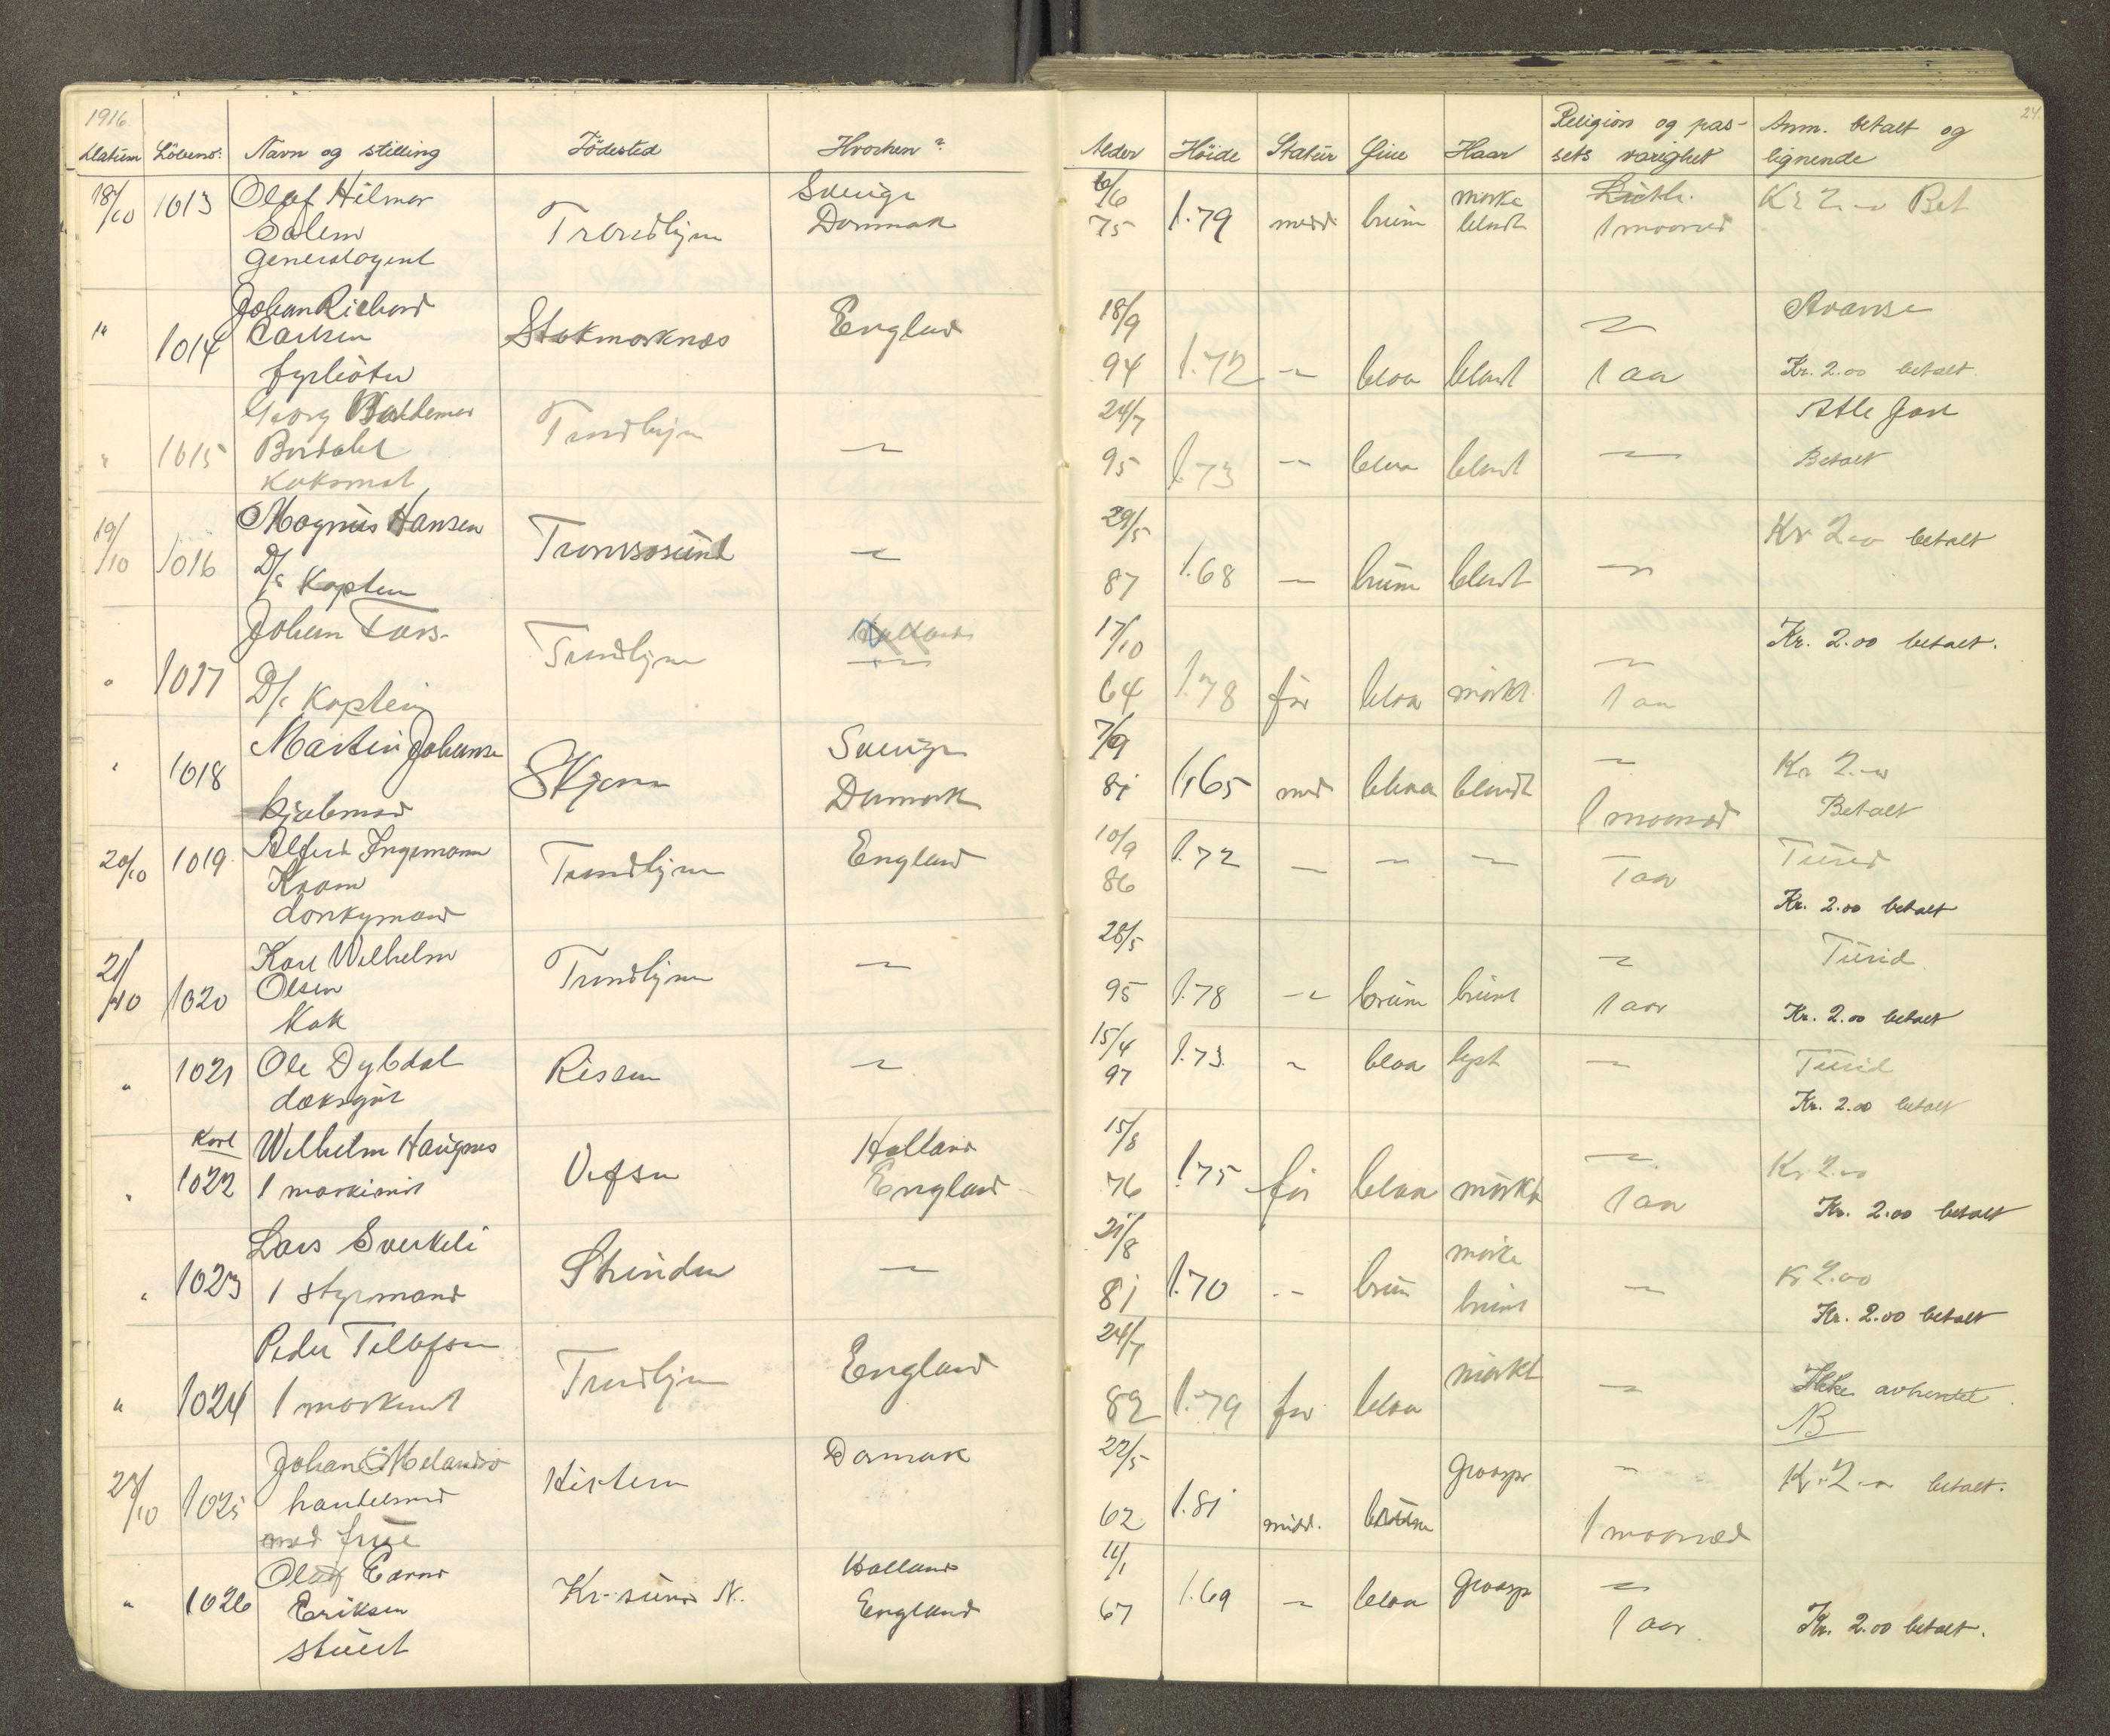 1916.
24.
Datum Löbenr: Navn og stilling Födested Hvorhen? Alder Höide Statur Öine Haar Religion og pas- Anm. betalt og
sets varighet lignende
18/10 1013 Olaf Hilmar Sverige 6/6 mörke Luth. Kr 2.- Bet
Salem Trondhjem Danmark 75 1.79 midd. brune blondt 1 maaned
Generalagent
" 1014 Johan Richard 18/9 Avanse
Carlsen Stokmarknæs England 94 1.72 - blaa blondt 1 aar Kr. 2.00 betalt.
fyrböter
" 1015 Georg Waldemar Trondhjem 24/7 Atle Jarl
Bordahl - 95 1.73 - blaa blondt - Betalt
Koksmat
19/10 1016 Magnus Hansen Tromsösund - 29/5 Kr 2.- betalt
D/s Kaptein 87 1.68 - brune blondt -
" 1017 Johan Lars- Trondhjem 17/10 Kr. 2.00 betalt.
D/s Kaptein - 64 1.78 før blaa mörkt 1 aar
" 1018 Martin Johanse Skjern Sverige 7/9 - Kr 2.-
Danmark 81 1,65 mid blaa blondt 1 maaned Betalt
20/10 1019 Alfred Ingemann Trondhjem England 10/9 1.72 - - - 1 aar Turid
Kvam 86 Kr. 2.00 betalt
donkymand
21/10 1020 Karl Wilhelm Trondhjem - 28/5 - Turid
Olsen 95 1.78 - brune brunt 1 aar Kr. 2.00 betalt
Kok
" 1021 Ole Dybdal Rissen - 15/4 1.73. - blaa lyst - Turid
dæksgut 97 Kr. 2.00 betalt
Karl
" 1022 Wilhelm Haugnes Vefsn Holland 15/8 - Kr 2.00
1 maskinist England 76 1.75 før blaa mörkt 1 aar Kr. 2.00 betalt
" 1023 Lars Sverkeli Strinden - 21/8 mörke Kr 2.00
1 styrmand 81 1.70 - brune brunt - Kr. 2.00 betalt
" 1024 Peder Tellefsen Trondhjem England 24/7 mörkt
1 maskinist 82 1.79 før blaa - Ikke avhentet.
NB
1025 Johan Melandsø Hitteren Danmark 22/5 graaspr. - Kr. 2.- betalt.
/10 handelsmand 62 1.81 midd. brune 1 maaned
med frue
" 1026 Olaf Holland 11/1 graaspr -
Eriksen Kr-sund N. England 67 1.69 - blaa 1 aar Kr. 2.00 betalt.
stuert